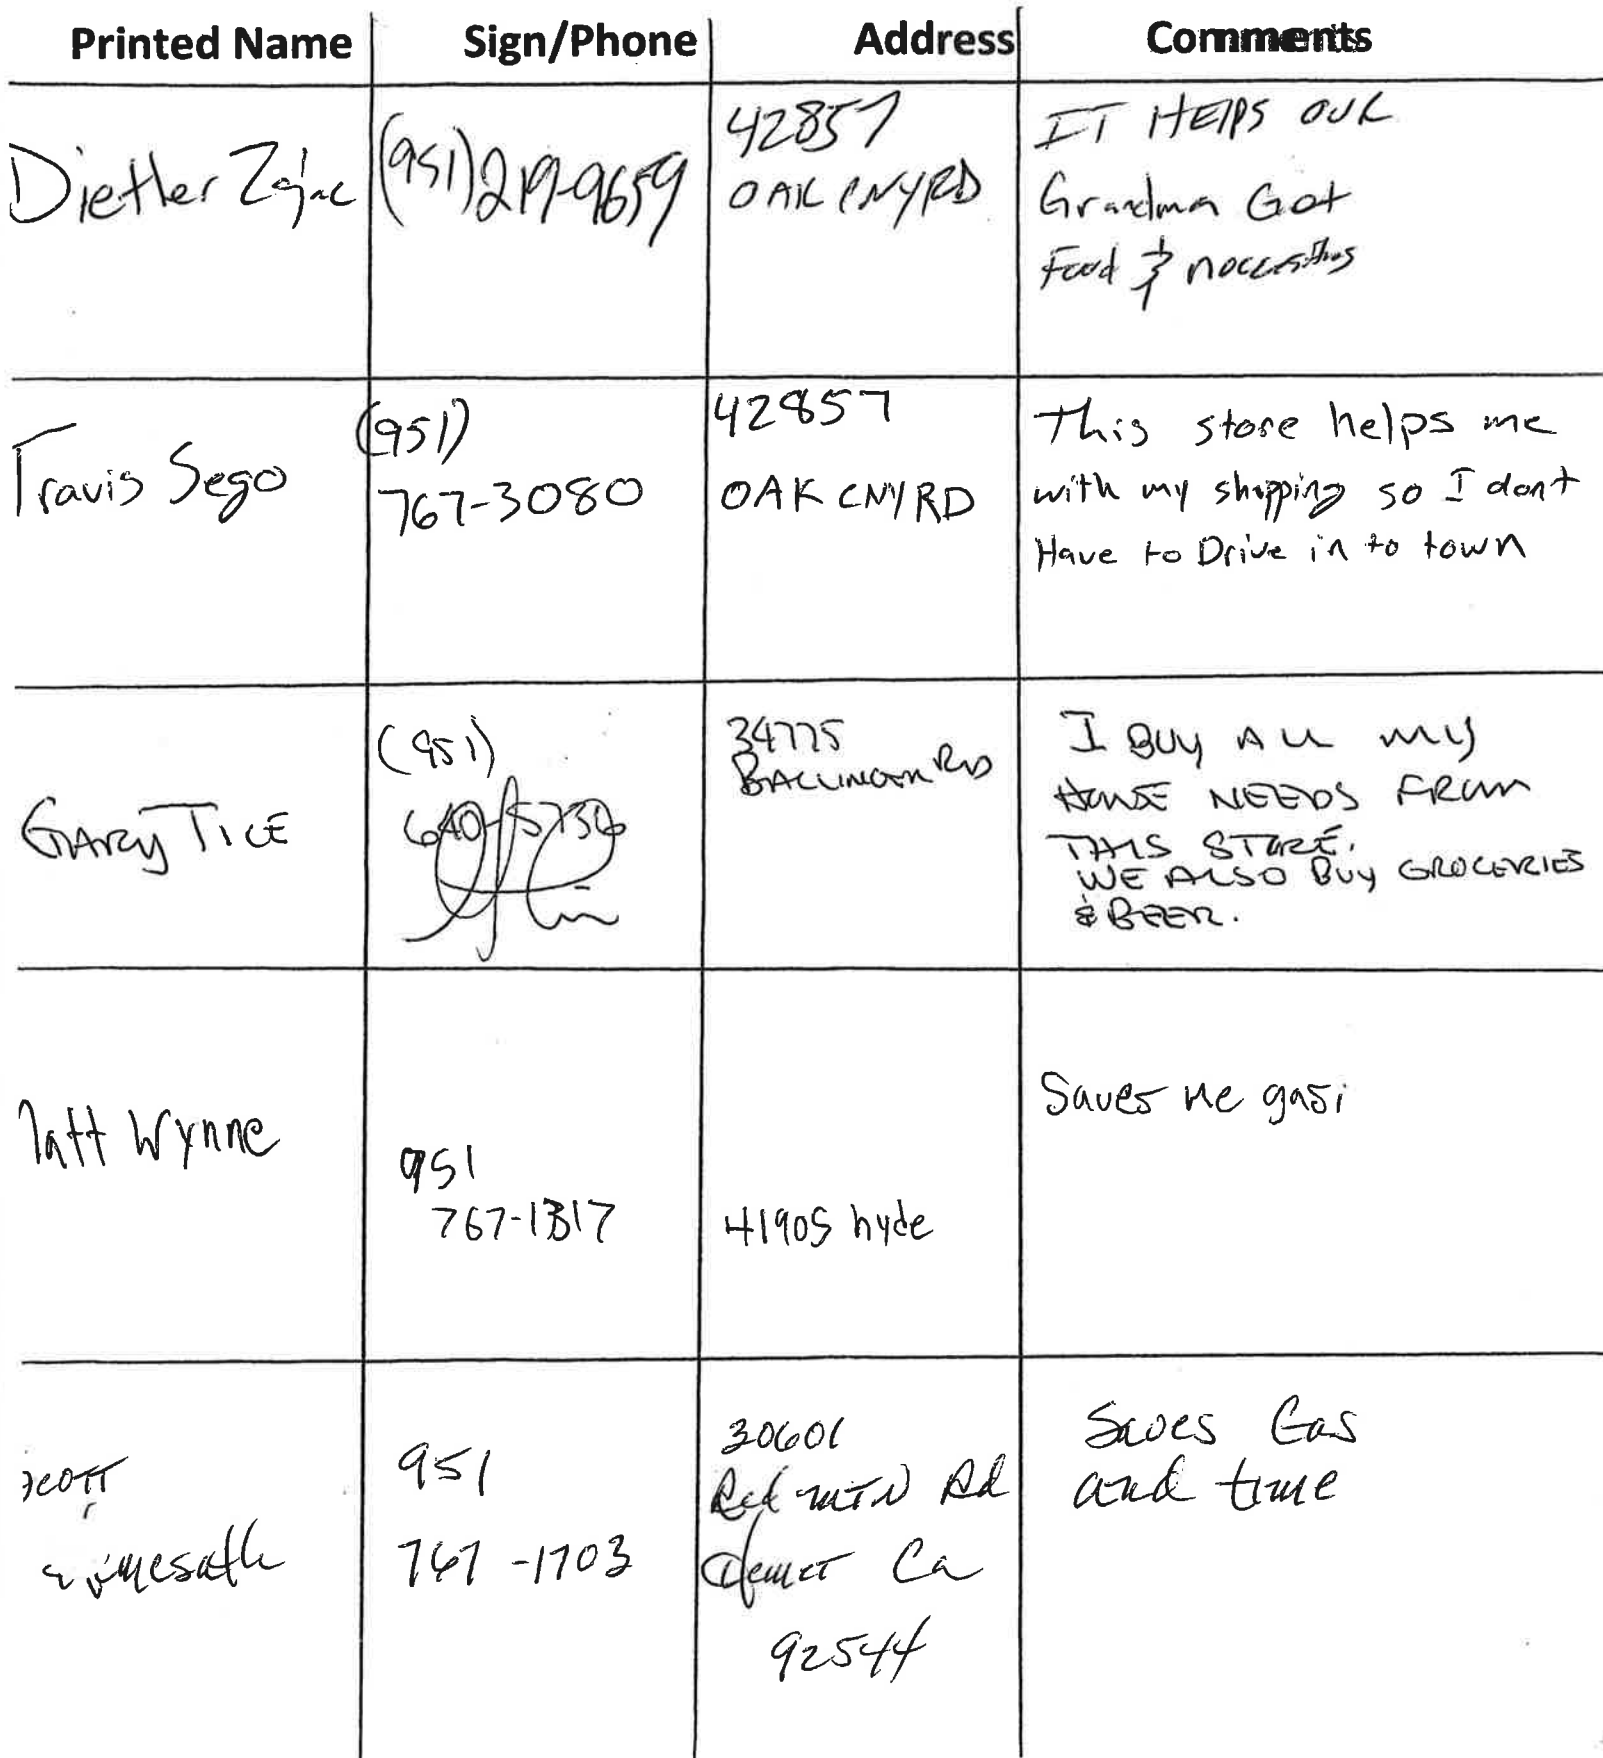 Printed Name Sign/Phone Address Comments
Dietler Zajac (951) 219-9659 42857
OAK CNYRD
IT HElPS OUR
Grandma Got
Food &
Travis Sego (951)
767-3080
42857
OAK CNYRD
This store helps me
with my shopping so I dont
Have to Drive in to town
GARY TICE (951)
640-5736
34775
BALLINGER RD
I BUY ALL MY
HOUSE NEEDS FROM
THIS STORE.
WE ALSO BUY GROCERIES
& BEER.
Matt Wynne
951
767-1317
41905 hyde
Saves me gas
Scott
951
767-1703
30601
Red MTN Rd
Hemet Ca
92544
Saves Gas
and time